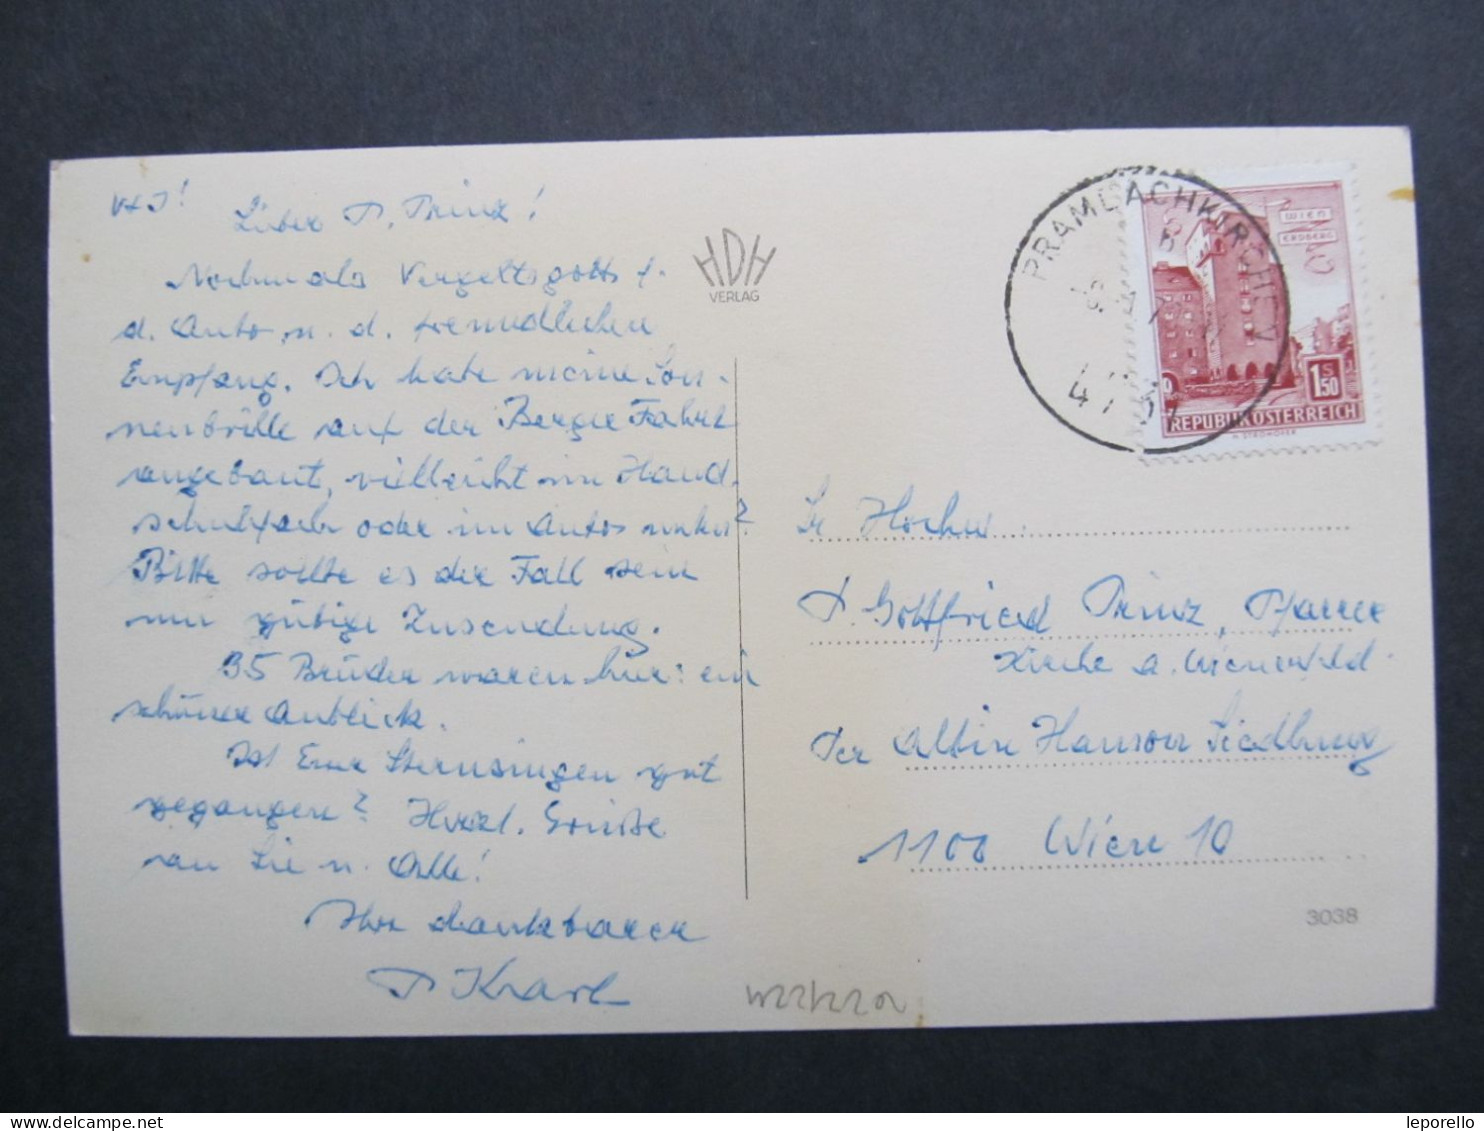 Lieber P. Prinz!
Nochmals Vergeltsgott f.
d. Auto u. d. freundlichen
Empfang. Ich habe meine Son-
nenbrille auf der Berger Fahrt
angebaut, vielleicht im Hand-
schuhfach oder im Autos unten?
Bitte sollte es der Fall sein
um gütige Zusendung.
35 Brüder waren hier: ein
schöner Anblick.
Ist Eure Sternsingen gut
gegangen? Herzl. Grüße
an Sie u. Alle!
Ihr dankbarer
P Karl
HDH
VERLAG
PRAMBACHKIRCHEN
WIEN
ERDBERG
1 S 50
REPUBLIK ÖSTERREICH
Sr Hochw
P. Gottfried Prinz, Pfarrer
Kirche a. Wienerfeld
Per Albin Hanson Siedlung
1100 Wien 10
3038
leporello